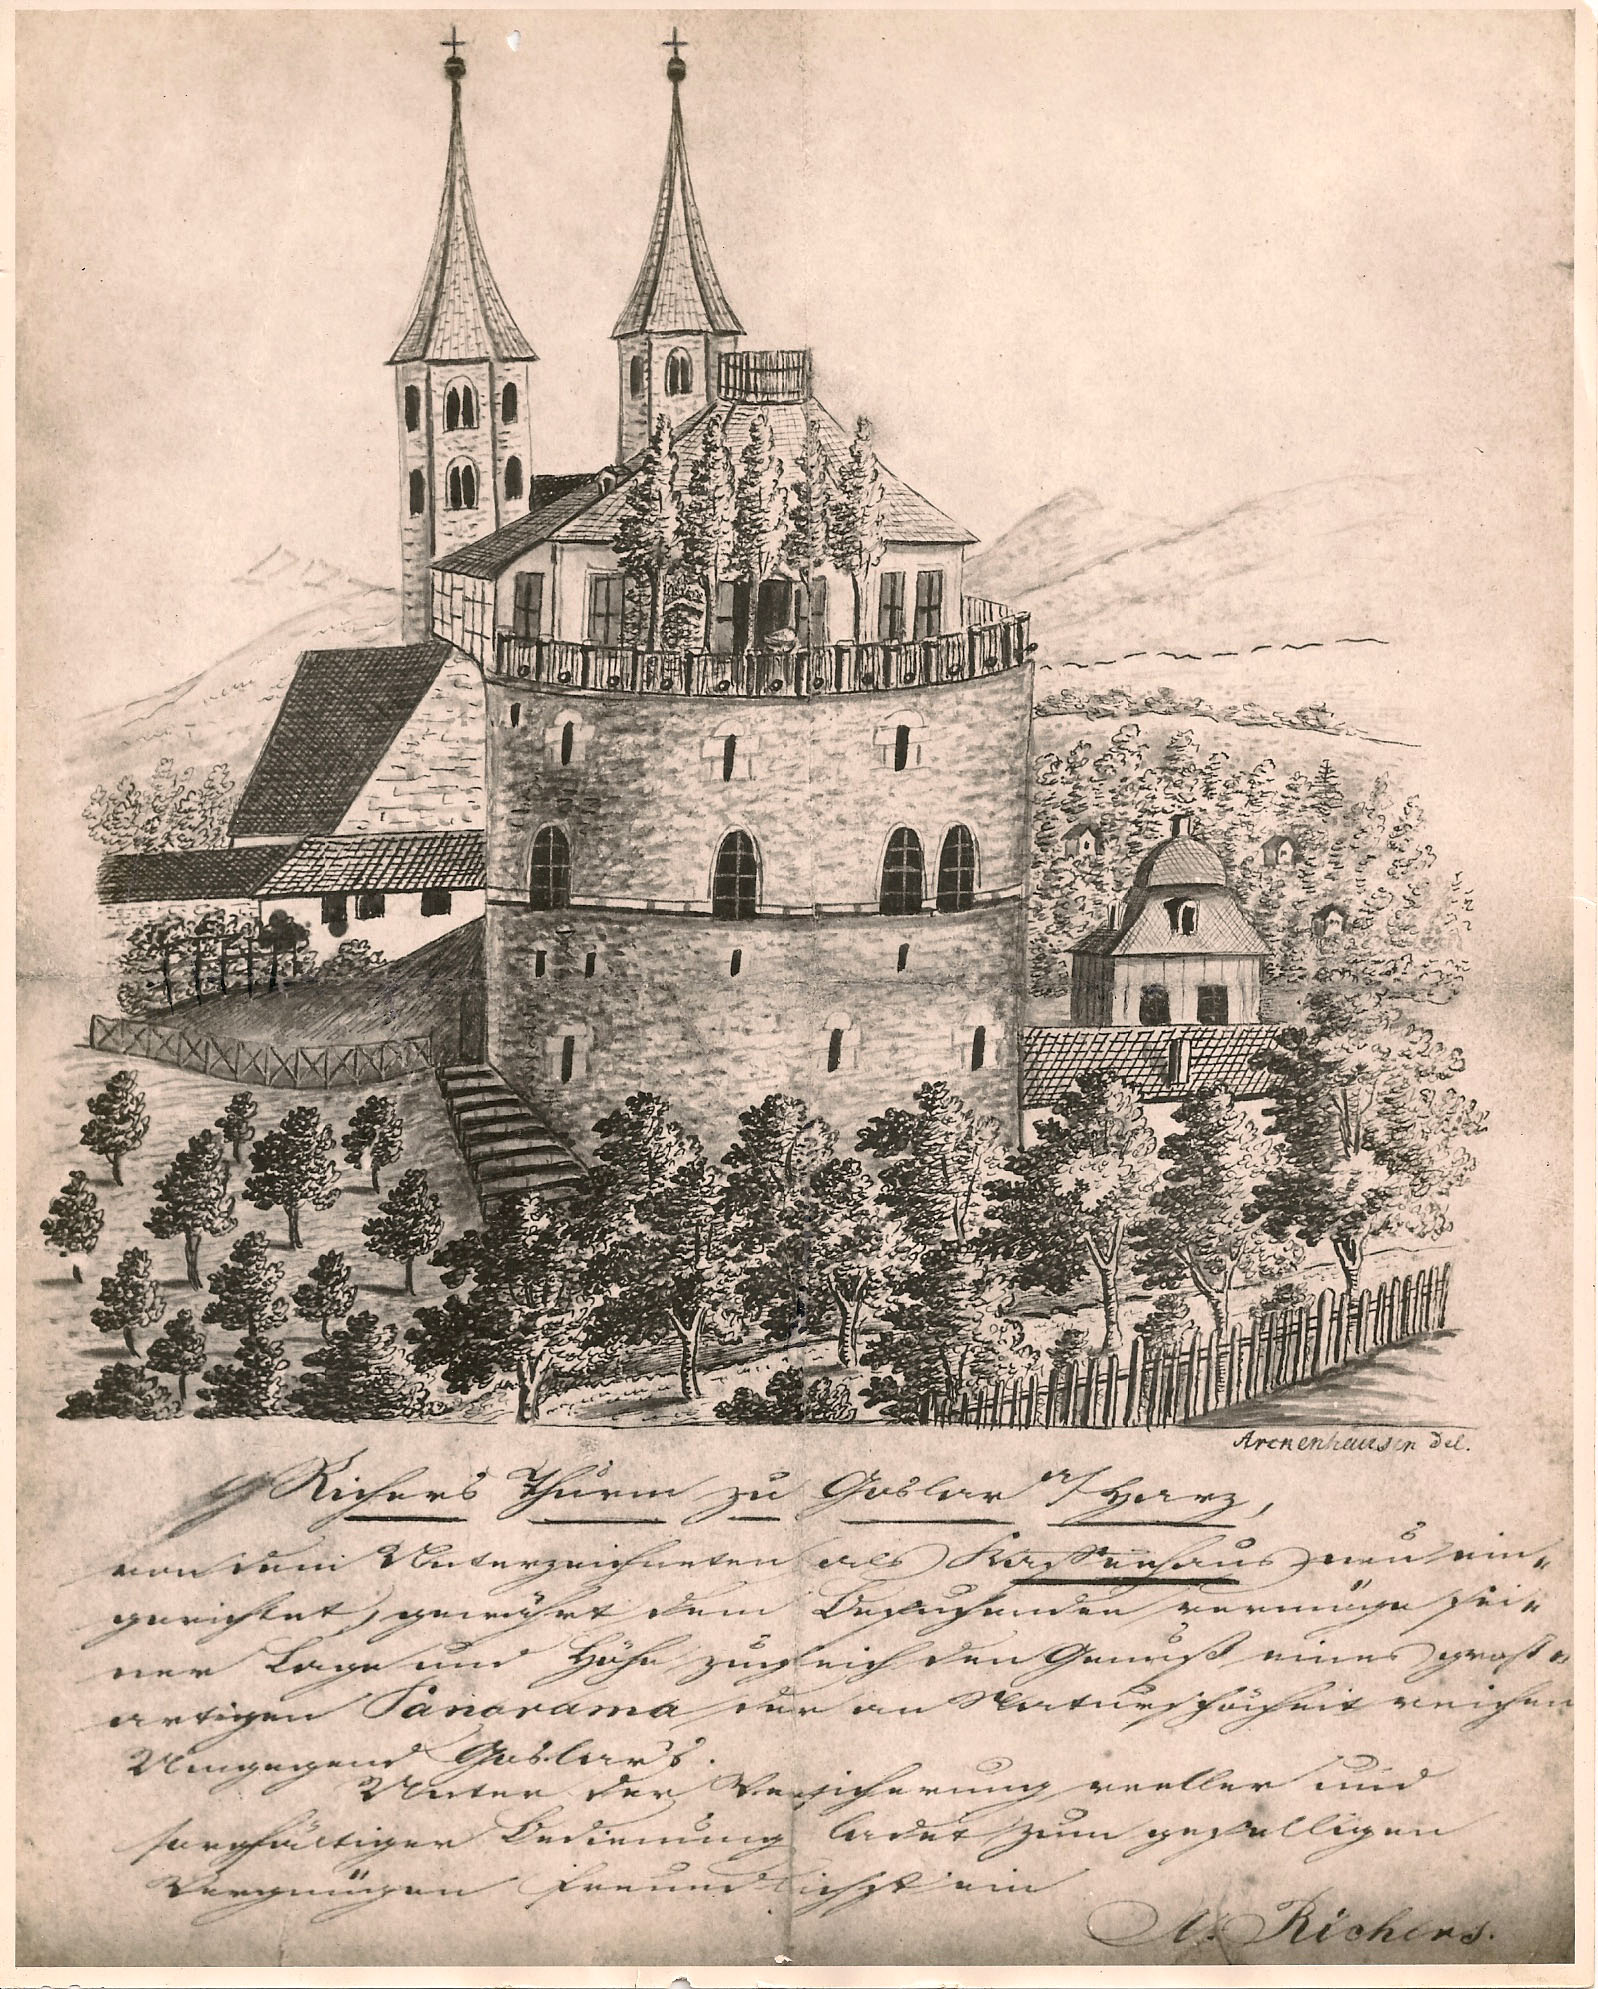 Arckenhausen del.
Richers Thurm zu Goslar a/Harz,
von dem Unterzeichneten als Kaffeehaus neu ein-
gerichtet, gewährt dem Besuchenden vermöge sei-
ner Lage und Höhe zugleich den Genuß eines groß-
artigen Panorama der an Naturschönheit reichen
Umgegend Goslar's.
Unter der Versicherung reeller und
sorgfältiger Bedienung ladet zum geselligen
Vergnügen freundlichst ein
A. Richers.